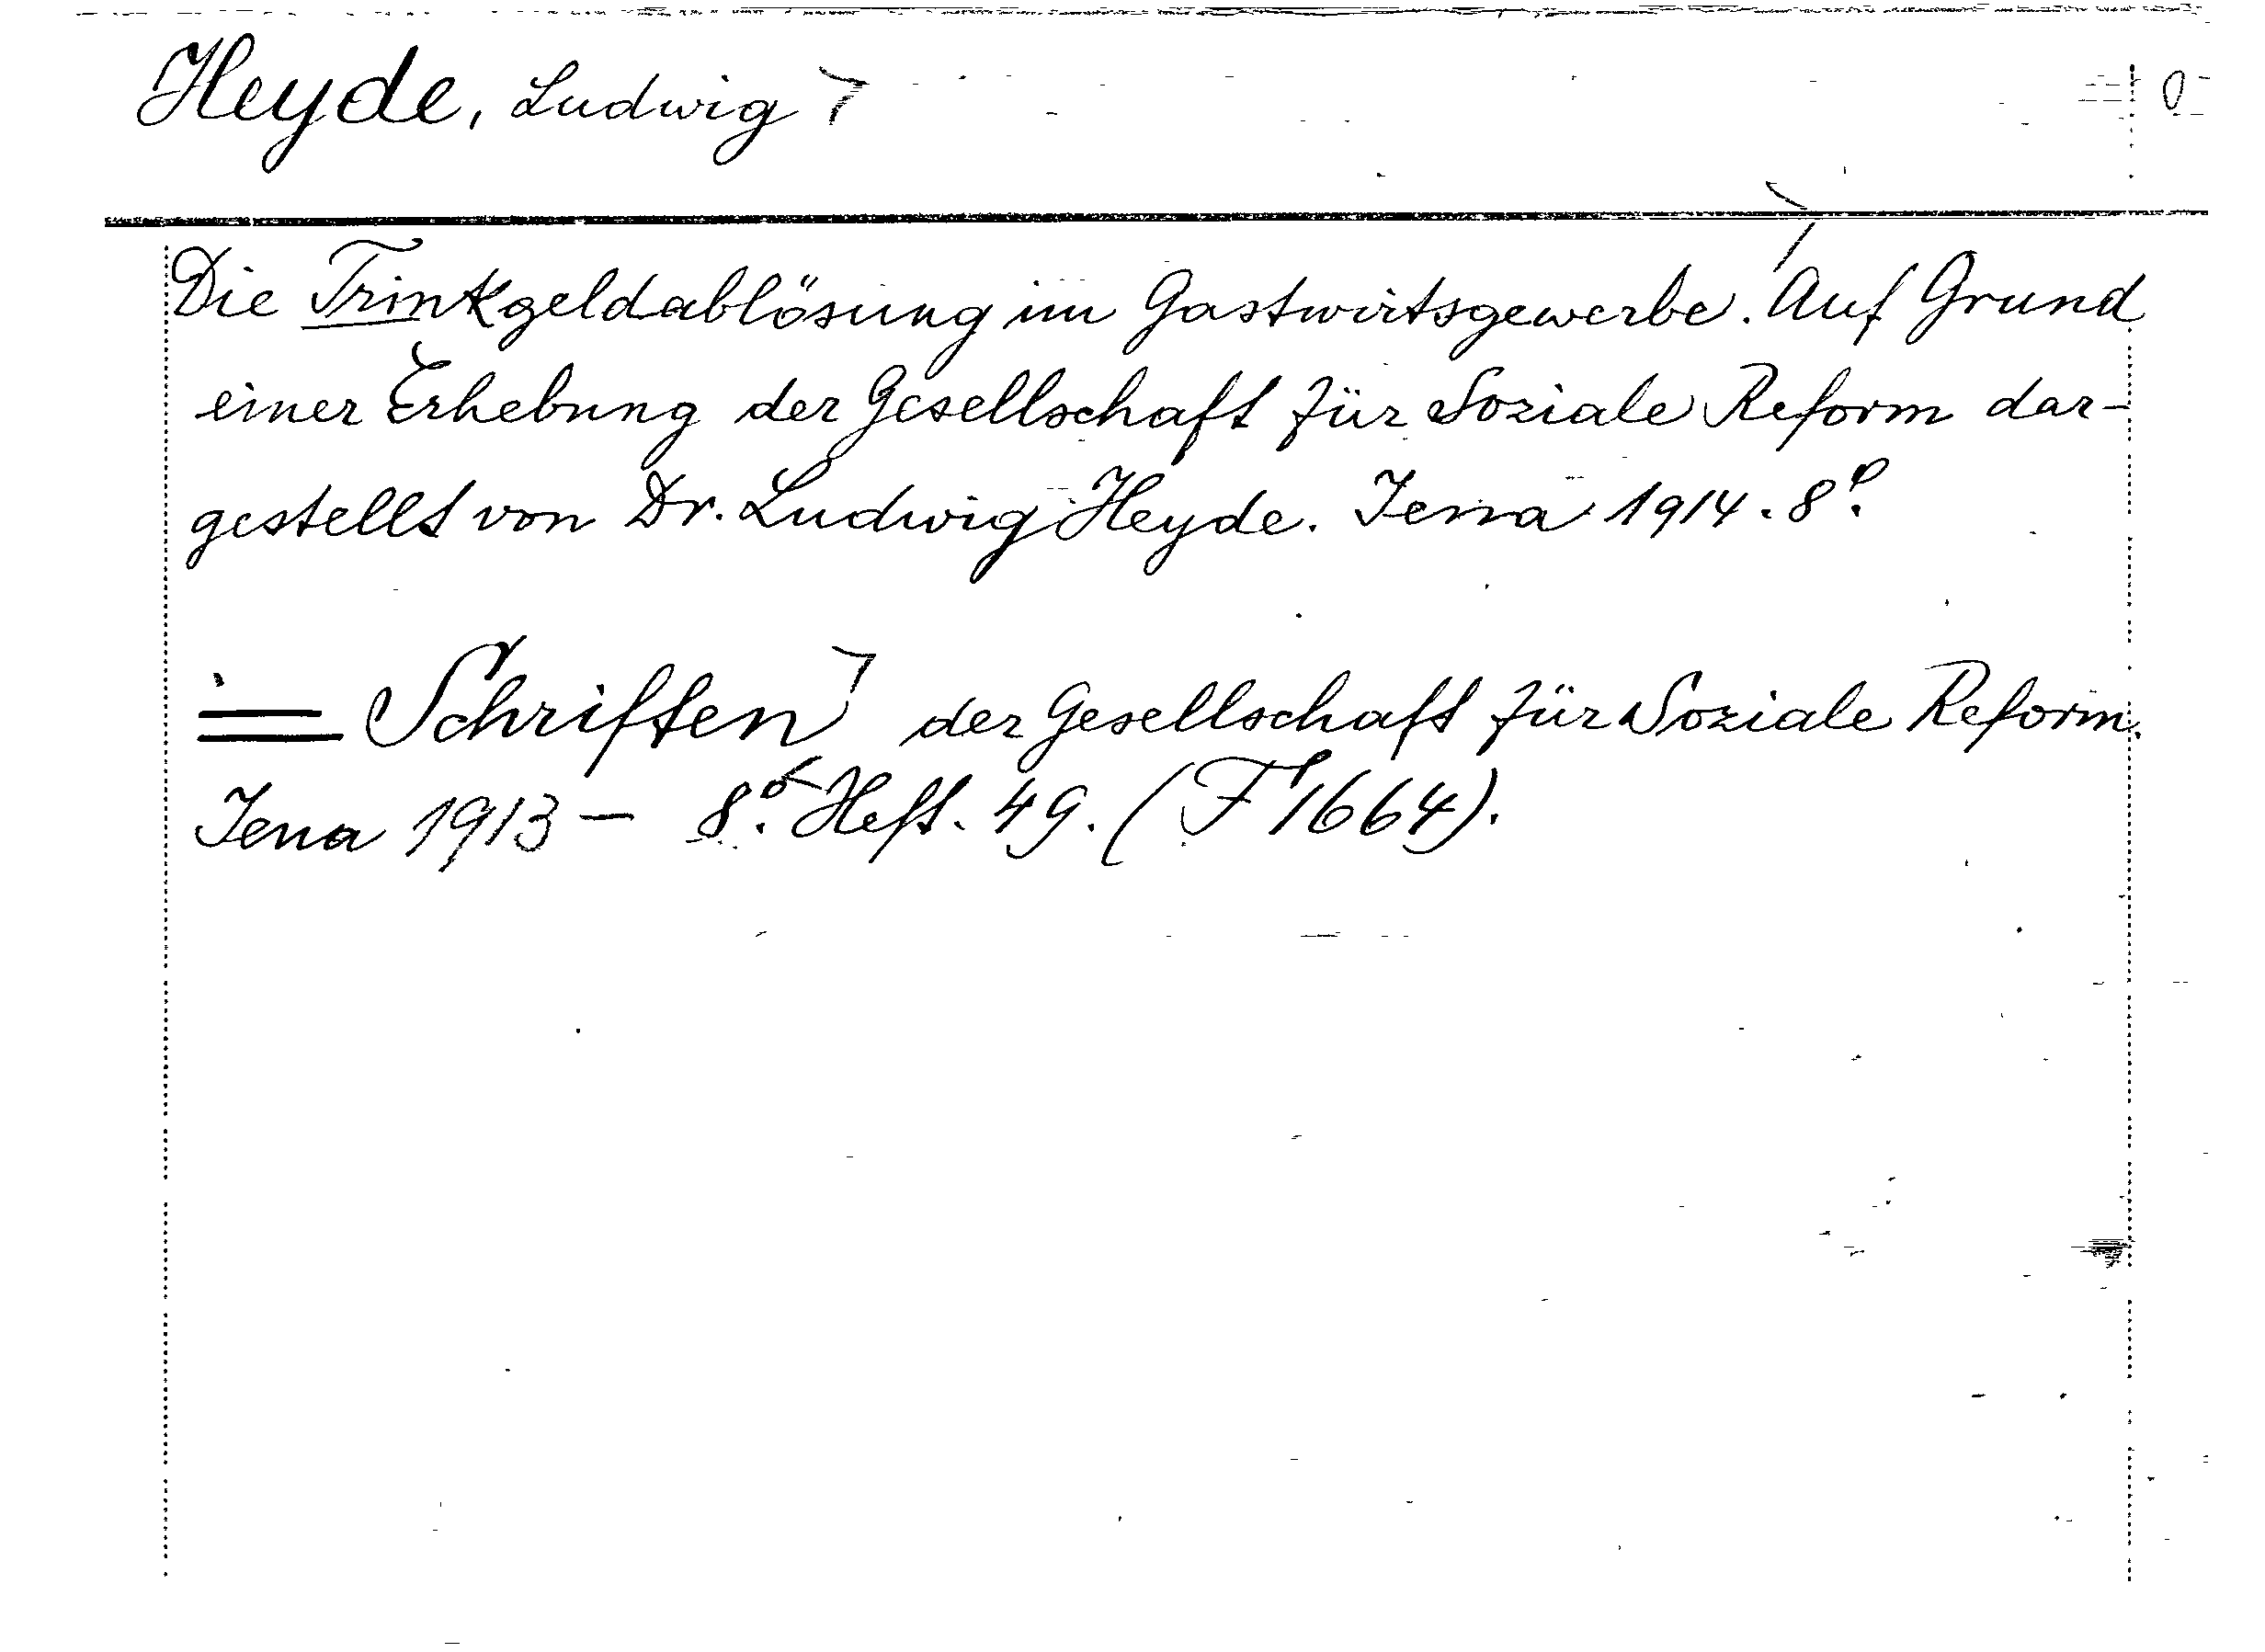 Heyde, Ludwig
Die Trinkgeldablösung im Gastwirtsgewerbe. Auf Grund
einer Erhebung der Gesellschaft für Soziale Reform dar-
gestellt von Dr. Ludwig Heyde. Jena 1914. 8°.
= Schriften der Gesellschaft für Soziale Reform.
Jena 1913 – 8°. Heft. 49. (F 1664).